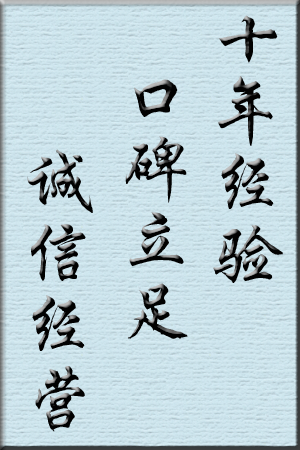 十年经验
口碑立足
诚信经营